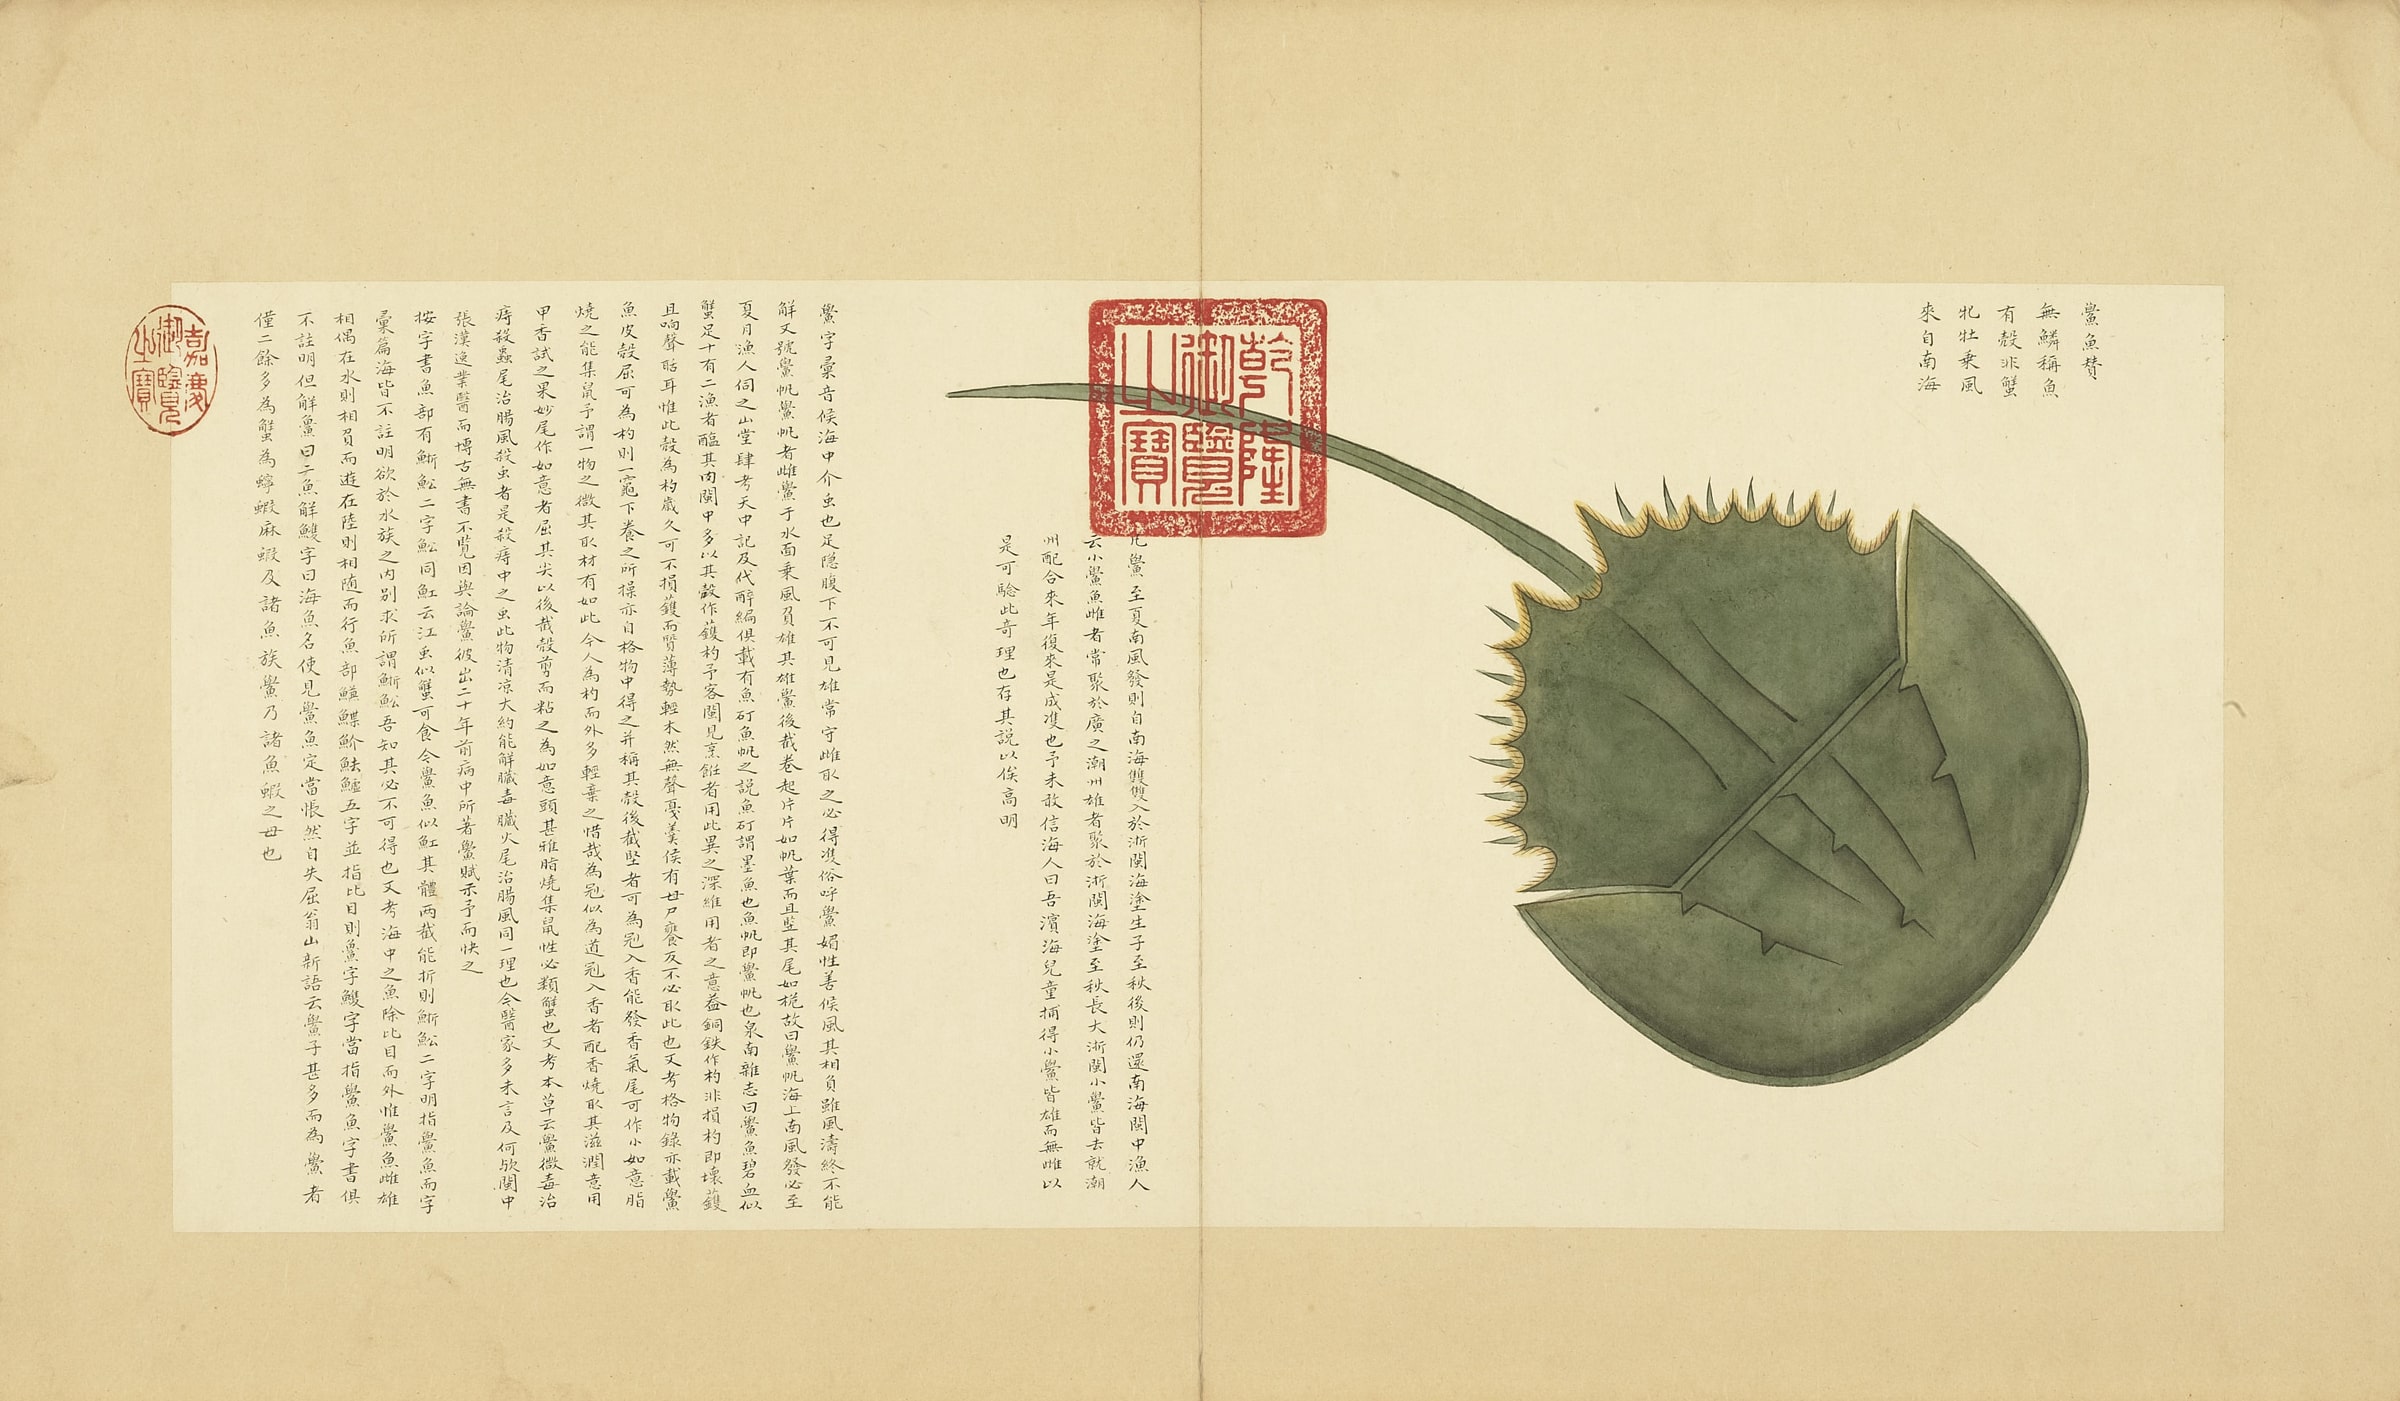 鱟魚賛
無鱗稱魚
有殼非蟹
牝牡乗風
來自南海
乾隆
御覽
之寶
凡鱟至夏南風發則自南海雙雙入於浙閩海塗生子至秋後則仍還南海閩中漁人
云小鱟魚雌者常聚於廣之潮州雄者聚於浙閩海塗至秋長大浙閩小鱟皆去就潮
州配合來年復來是成雙也予未敢信海人曰吾濱海兒童捕得小鱟皆雄而無雌以
是可騐此奇理也存其說以俟高明
鱟字彙音候海中介虫也足隱腹下不可見雄常守雌取之必得雙俗呼鱟媚性善候風其相負雖風濤終不能
解又號鱟帆鱟帆者雌鱟于水面乗風負雄其雄鱟後截巻起片片如帆葉而且竪其尾如桅故曰鱟帆海上南風發必至
夏月漁人伺之山堂肆考天中記及代醉編俱載有魚矴魚帆之說魚矴謂墨魚也魚帆即鱟帆也泉南雜志曰鱟魚碧血似
蟹足十有二漁者醢其肉閩中多以其殼作鑊杓予客閩見烹飪者用此異之深維用者之意葢銅鉄作杓非損杓即壞鑊
且响聲聒耳惟此殼為杓歲久可不損鑊而質薄勢輕木然無聲戞羹侯有母尸饔反不必取此也又考格物錄亦載鱟
魚皮殼屈可為杓則一竈下養之所操亦自格物中得之并稱其殼後截堅者可為冠入香能發香氣尾可作小如意脂
燒之能集鼠予謂一物之微其取材有如此今人為杓而外多輕棄之惜哉為冠似為道冠入香者配香燒取其滋潤意用
甲香試之果妙尾作如意者屈其尖以後截殼剪而粘之為如意頭甚雅脂燒集鼠性必類蟹也又考本草云鱟微毒治
痔殺蟲尾治腸風殺虫者是殺痔中之虫此物清凉大約能解臟毒臟火尾治腸風同一理也今醫家多未言及何歟閩中
張漢逸業醫而博古無書不覽因與論鱟彼出二十年前病中所著鱟賦示予而快之
按字書魚部有魳魿二字魿同魟云江虫似蟹可食今鱟魚似魟其體兩截能折則魳魿二字明指鱟魚而字
彙篇海皆不註明欲於水族之内别求所謂魳魿吾知其必不可得也又考海中之魚除比目而外惟鱟魚雌雄
相偶在水則相負而遊在陸則相随而行魚部鰪鰈魪魼鱸五字並指比目則䲆字鱯字當指鱟魚字書俱
不註明但解䲆曰二魚解鱯字曰海魚名使見鱟魚定當悵然自失屈翁山新語云鱟子甚多而為鱟者
僅二餘多為蟹為蠏蝦麻蝦及諸魚族鱟乃諸魚蝦之母也
嘉慶
御覽
之寶